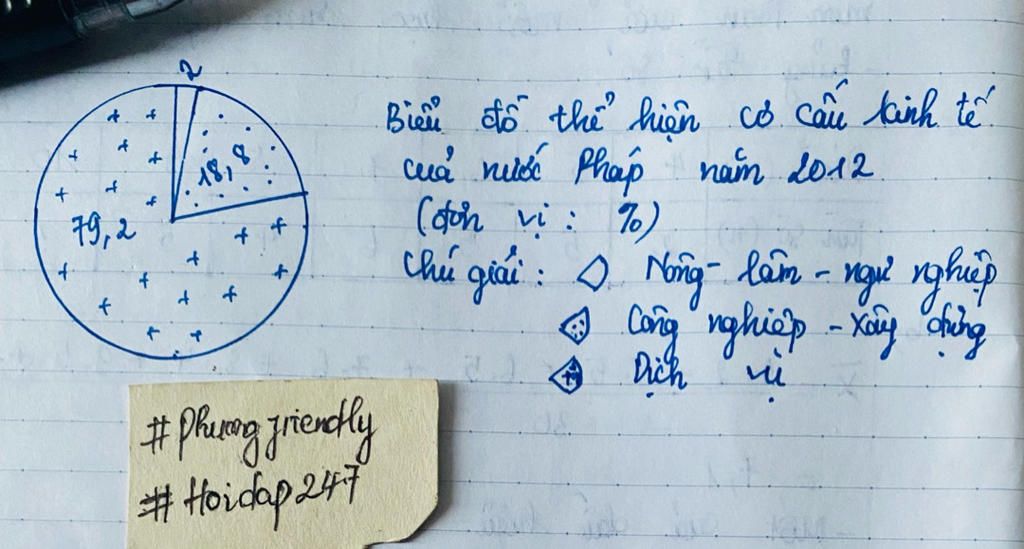 2
18,8
79,2
Biểu đồ thể hiện cơ cấu kinh tế
của nước Pháp năm 2012
(đơn vị : %)
Chú giải : Nông - lâm - ngư nghiệp
Công nghiệp - xây dựng
Dịch vụ
# Phuongfriendly
# Hoidap247